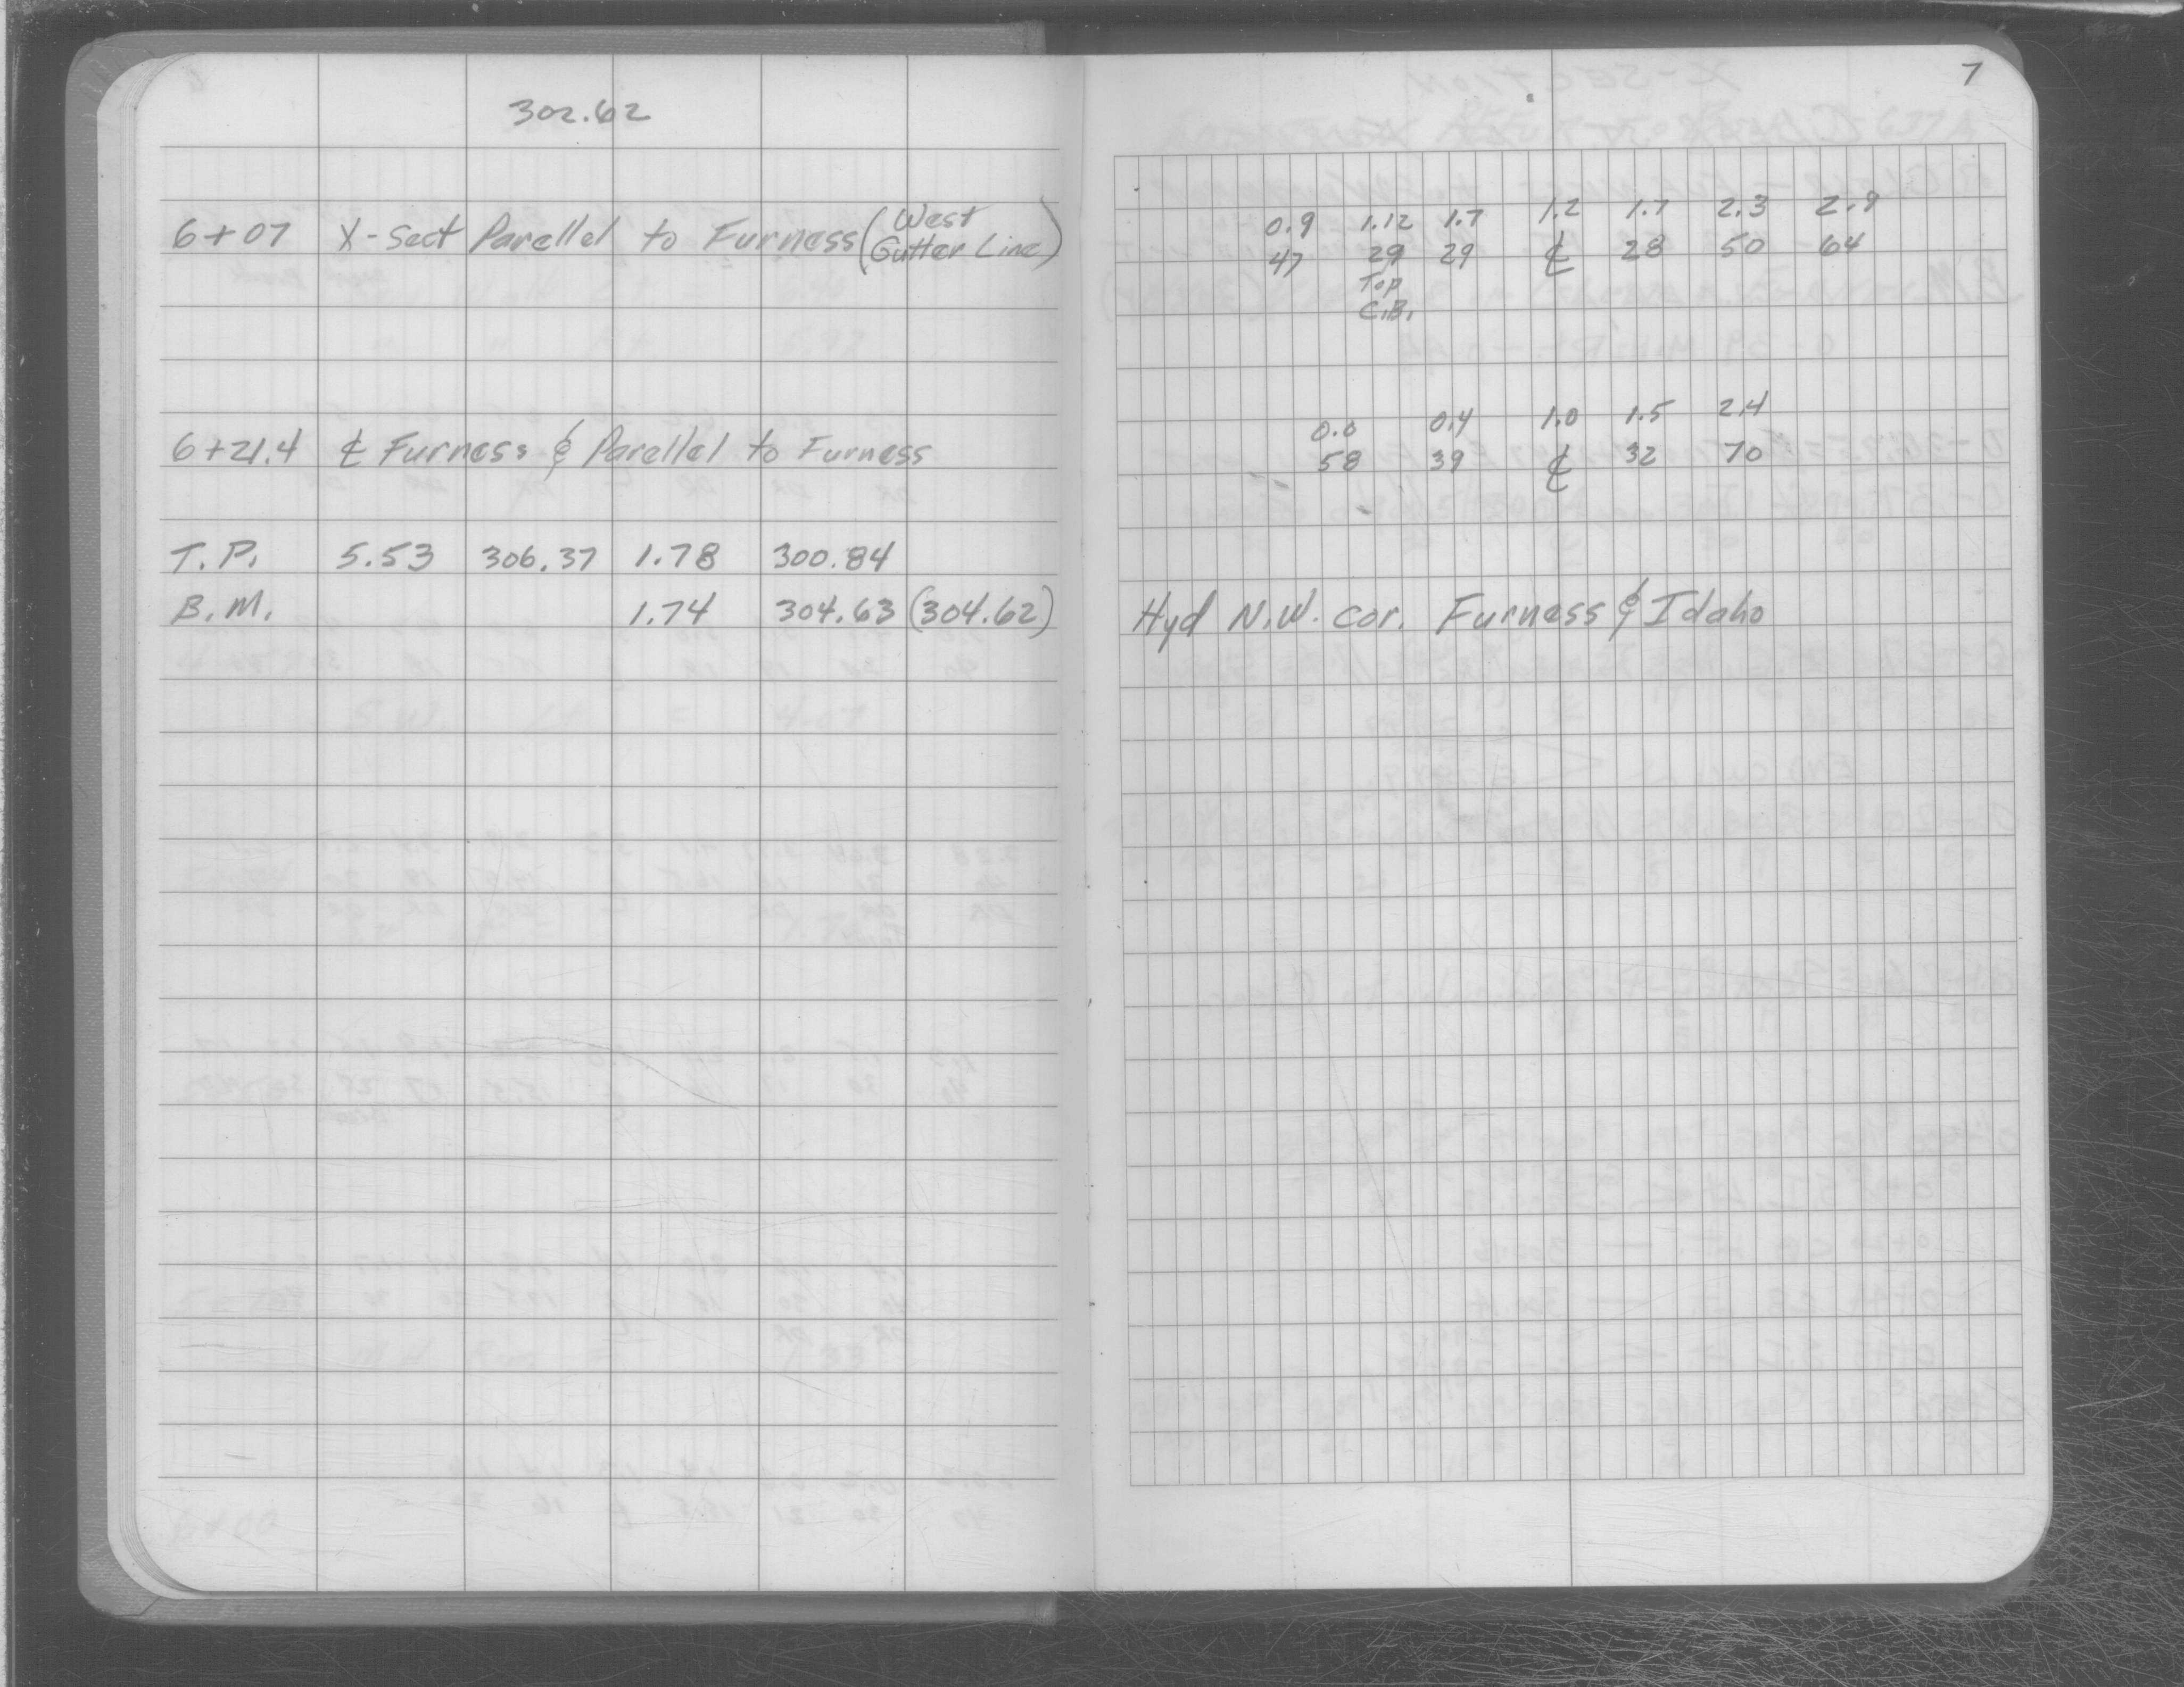 302.62
6+07 X-Sect Parellel to Furness (West Gutter Line)
6+21.4 ℄ Furness & Parellel to Furness
T.P. 5.53 306.37 1.78 300.84
B.M. 1.74 304.63 (304.62)
7
0.9 1.12 1.7 1.2 1.7 2.3 2.9
47 29 29 ℄ 28 50 64
Top
C.B.
0.0 0.4 1.0 1.5 2.4
58 39 ℄ 32 70
Hyd N.W. cor. Furness & Idaho